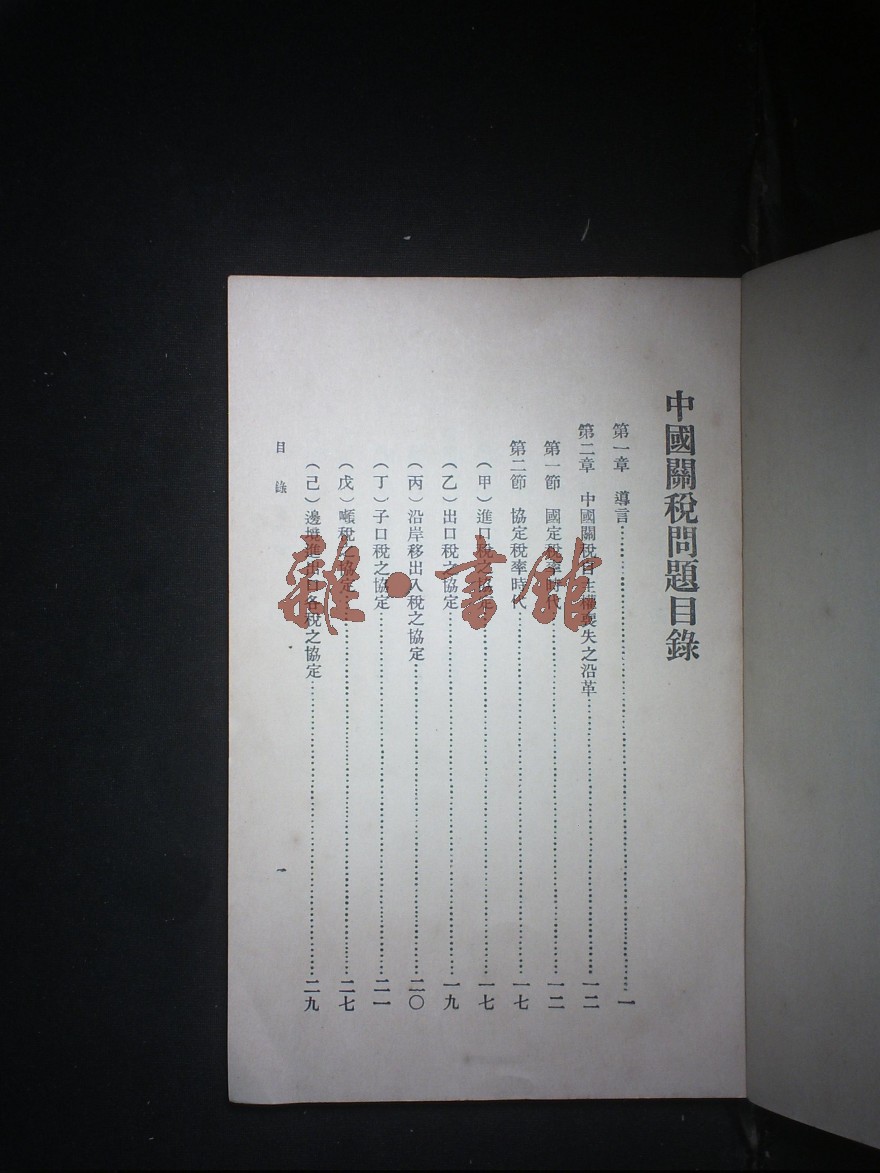 中國關稅問題目錄
第一章　導言……一
第二章　中國關稅自主權喪失之沿革……一二
第一節　國定稅率時代……一二
第二節　協定稅率時代……一七
（甲）進口稅之協定……一七
（乙）出口稅之協定……一九
（丙）沿岸移出入稅之協定……二〇
（丁）子口稅之協定……二一
（戊）噸稅之協定……二七
（己）邊境進出口各稅之協定……二九
目錄
一
雜·書館